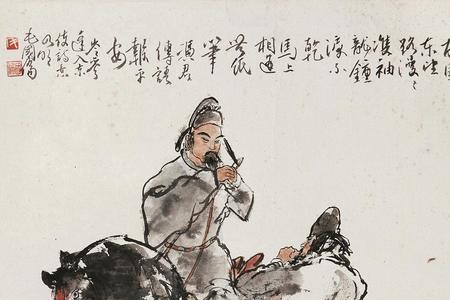 故園
東望
路漫〻
雙袖
龍鍾
淚不
乾
馬上
相逢
無紙
筆
憑君
傳語
報平
安
岑參
逢入京